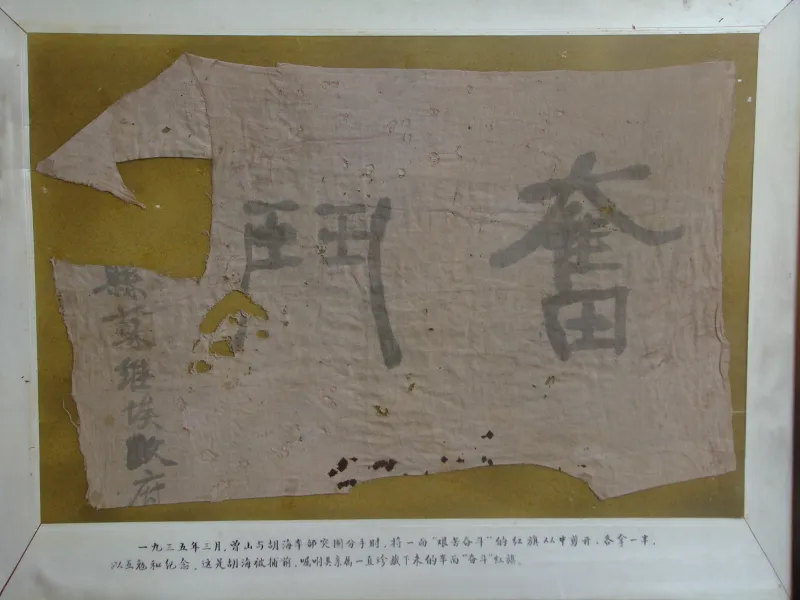 奮鬥
縣蘇維埃政府
一九三五年三月，曾山与胡海率部突围分手时，将一面“艰苦奋斗”的红旗从中剪开，各拿一半，
以互勉和纪念。这是胡海被捕前，嘱咐其亲属一直珍藏下来的半面“奋斗”红旗。